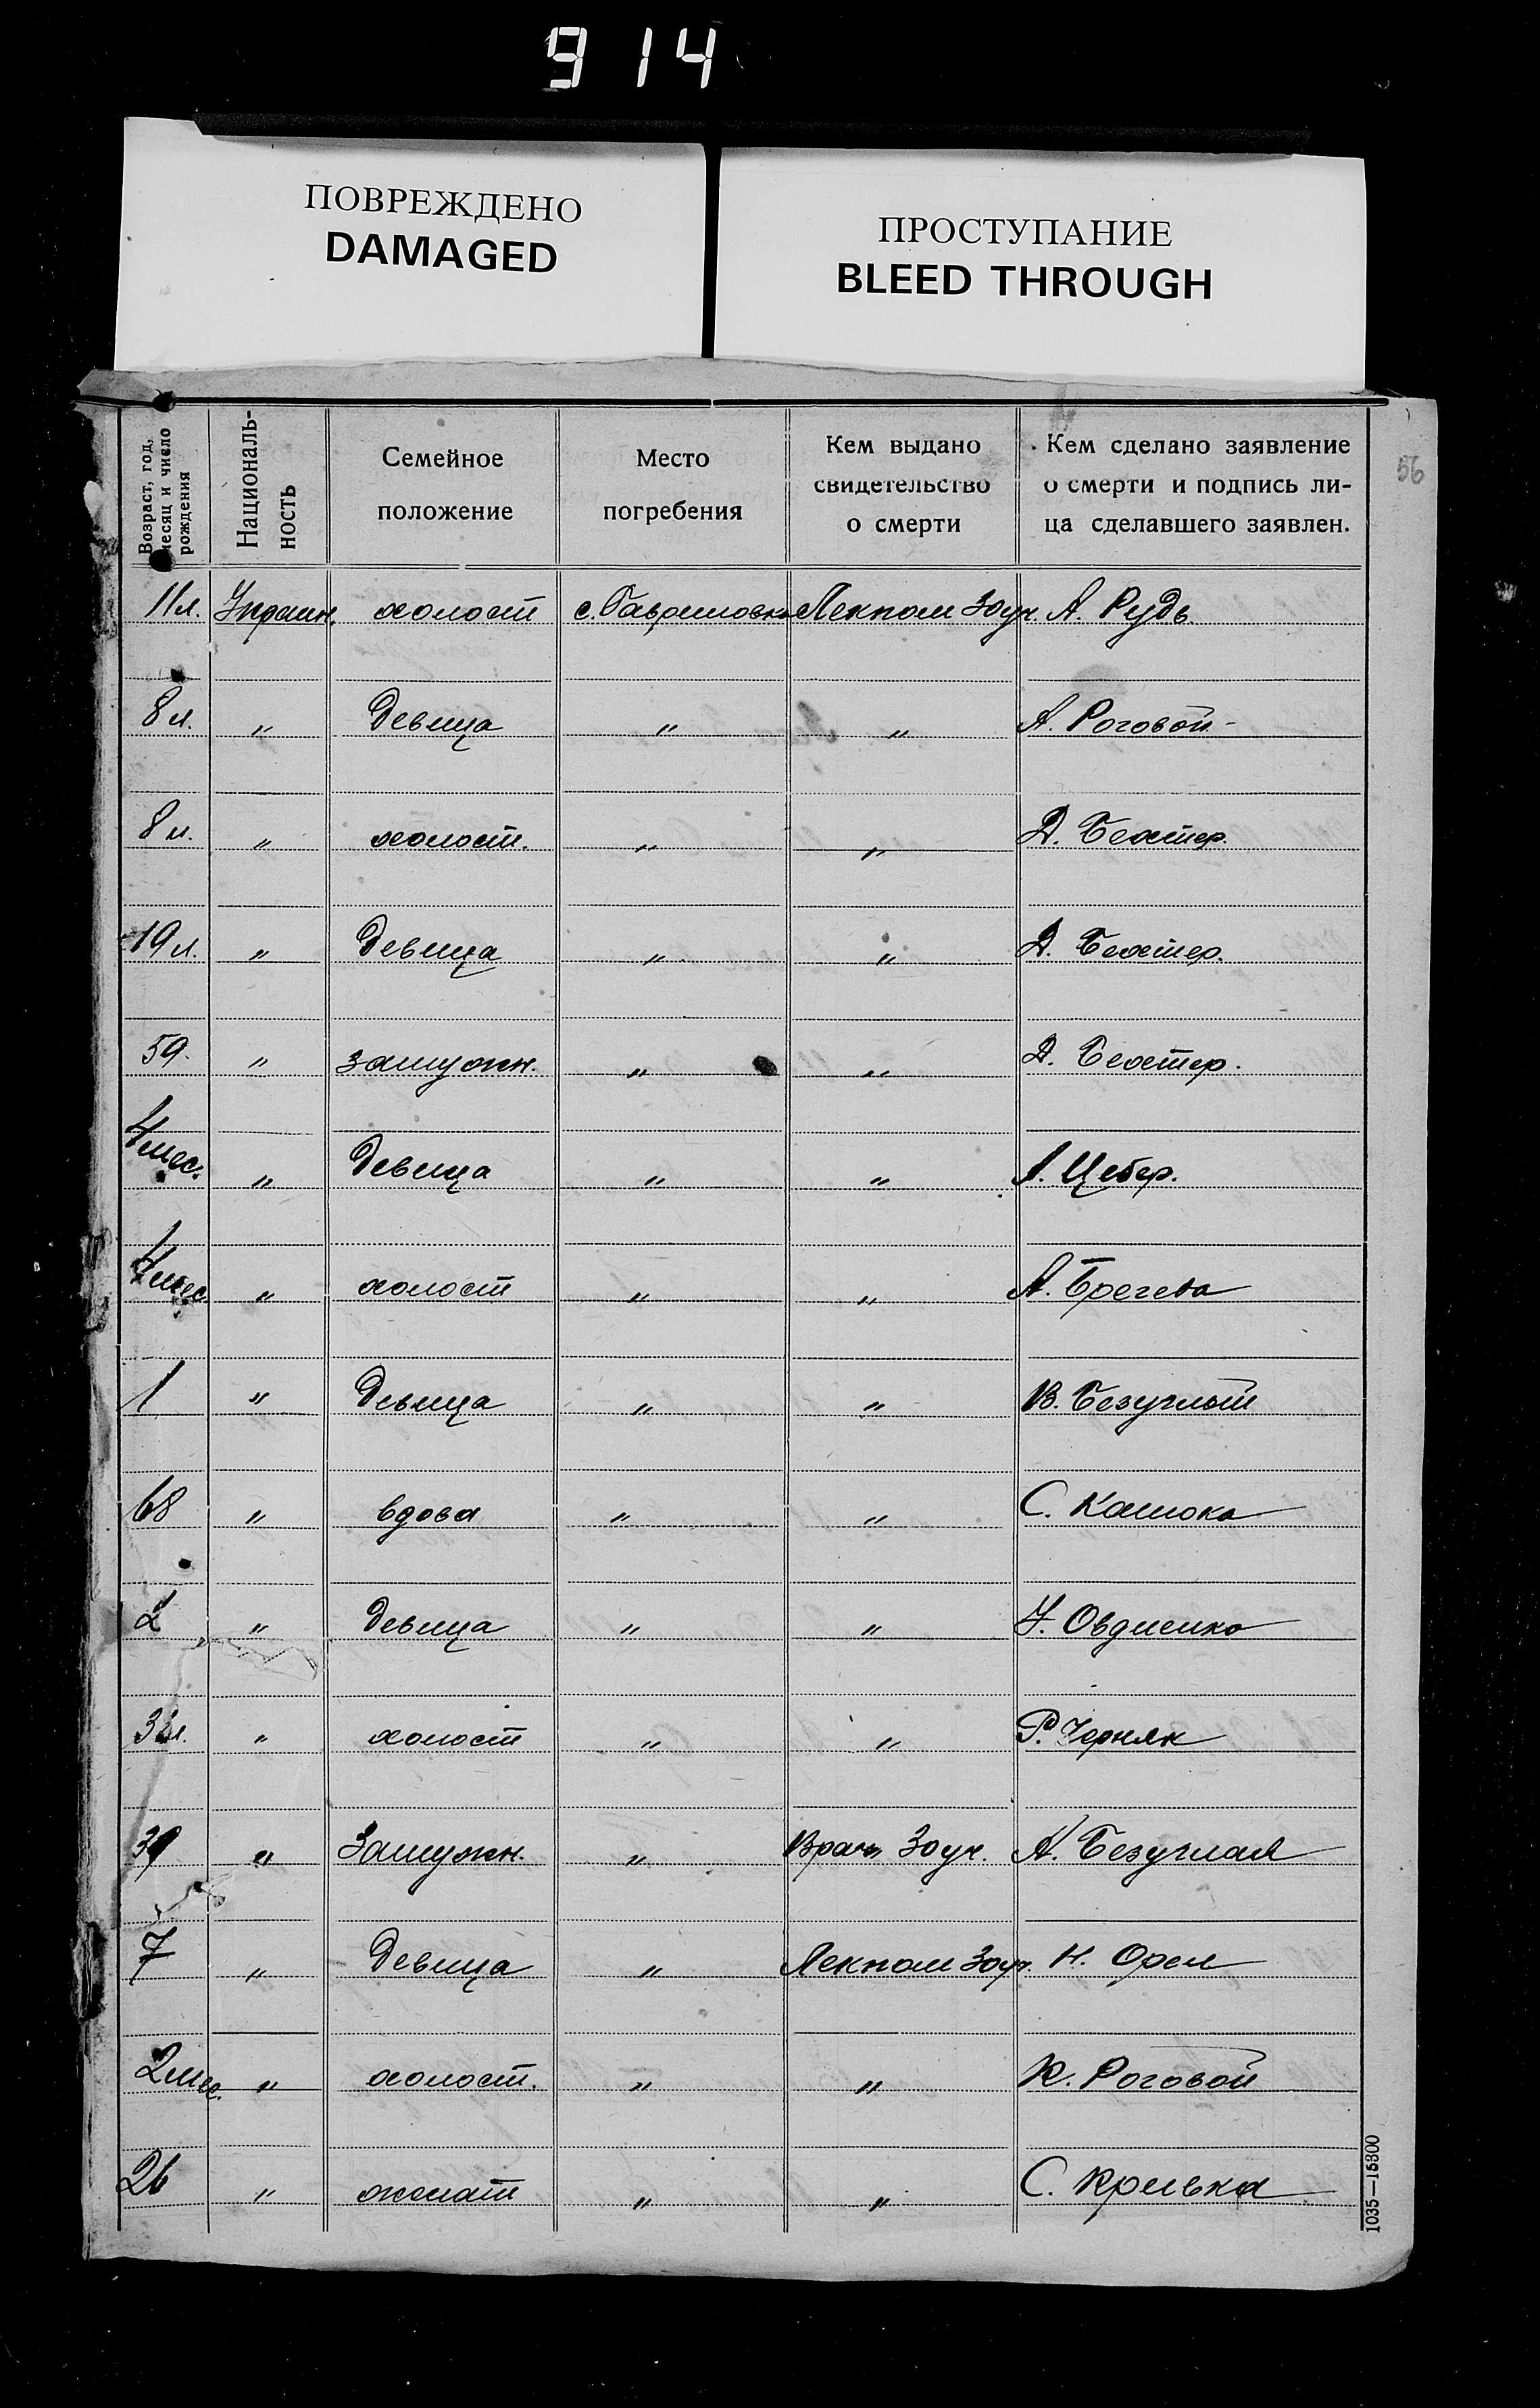 914
ПОВРЕЖДЕНО
DAMAGED
ПРОСТУПАНИЕ
BLEED THROUGH
56
Возраст, год, месяц и число рождения
Националь-
ность
Семейное
положение
Место
погребения
Кем выдано
свидетельство
о смерти
Кем сделано заявление
о смерти и подпись ли-
ца сделавшего заявлен.
11 л. Украин. холост с. Гавриловка Лекпом Зоуч. А. Рудь
8 л. " Девица " " А. Роговой
8 л. " холост. " " Д. Бехтер.
19 л. " Девица " " Д. Бехтер.
59. " замужн. " " Д. Бехтер.
4 мес. " Девица " " А. Цебер.
мес " холост " " А.
1 " Девица " " В. Безуглый
68 " вдова " " С. Катюха
2 " Девица " " Овдиенко
л. " холост " " Р. Черняк
39 " Замужн. " Врач Зоуч. А. Безуглая
7 " Девица " Лекпом Зоуч. Н. Орел
2 мес. " холост. " " К. Роговой
26 " женат " " С. Кривка
1035—15300